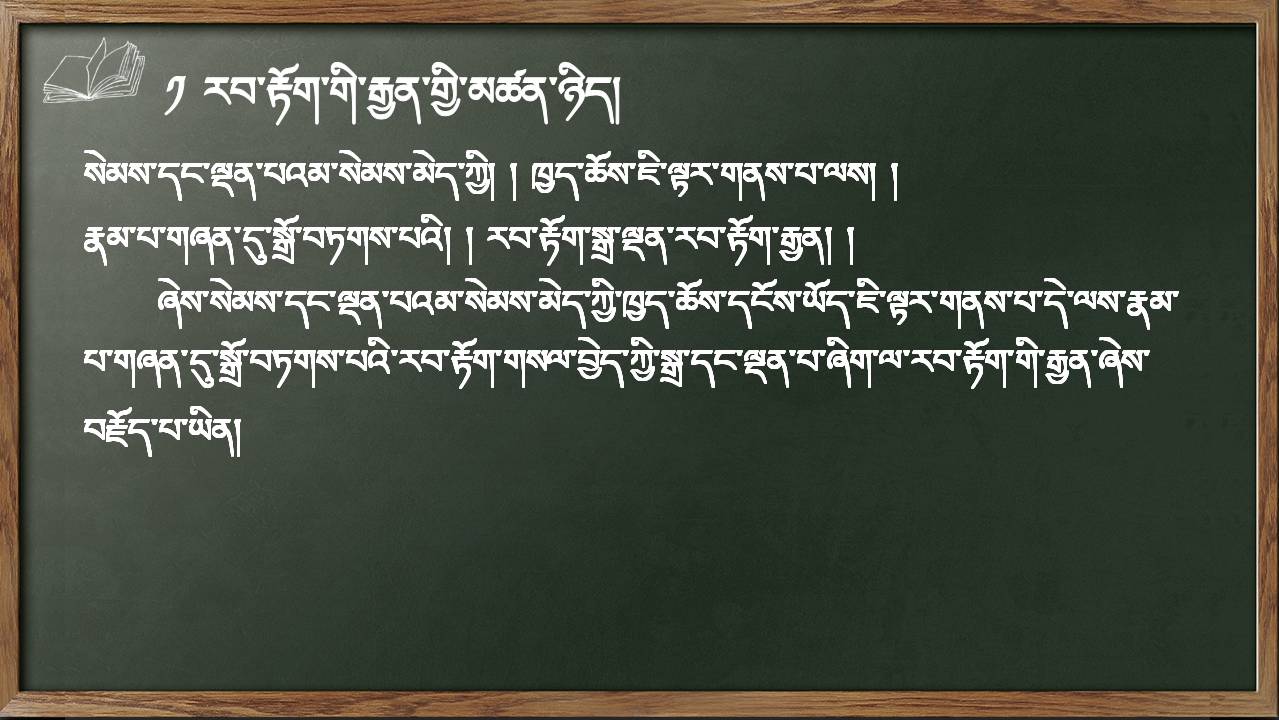 ༡ རབ་རྟོག་གི་རྒྱན་གྱི་མཚན་ཉིད།
སེམས་དང་ལྡན་པའམ་སེམས་མེད་ཀྱི། ། ཁྱད་ཆོས་ཇི་ལྟར་གནས་པ་ལས། །
རྣམ་པ་གཞན་དུ་སྒྲོ་བཏགས་པའི། ། རབ་རྟོག་སྒྲ་ལྡན་རབ་རྟོག་རྒྱན། །
ཞེས་སེམས་དང་ལྡན་པའམ་སེམས་མེད་ཀྱི་ཁྱད་ཆོས་དངོས་ཡོད་ཇི་ལྟར་གནས་པ་དེ་ལས་རྣམ་
པ་གཞན་དུ་སྒྲོ་བཏགས་པའི་རབ་རྟོག་གསལ་བྱེད་ཀྱི་སྒྲ་དང་ལྡན་པ་ཞིག་ལ་རབ་རྟོག་གི་རྒྱན་ཞེས་
བརྗོད་པ་ཡིན།